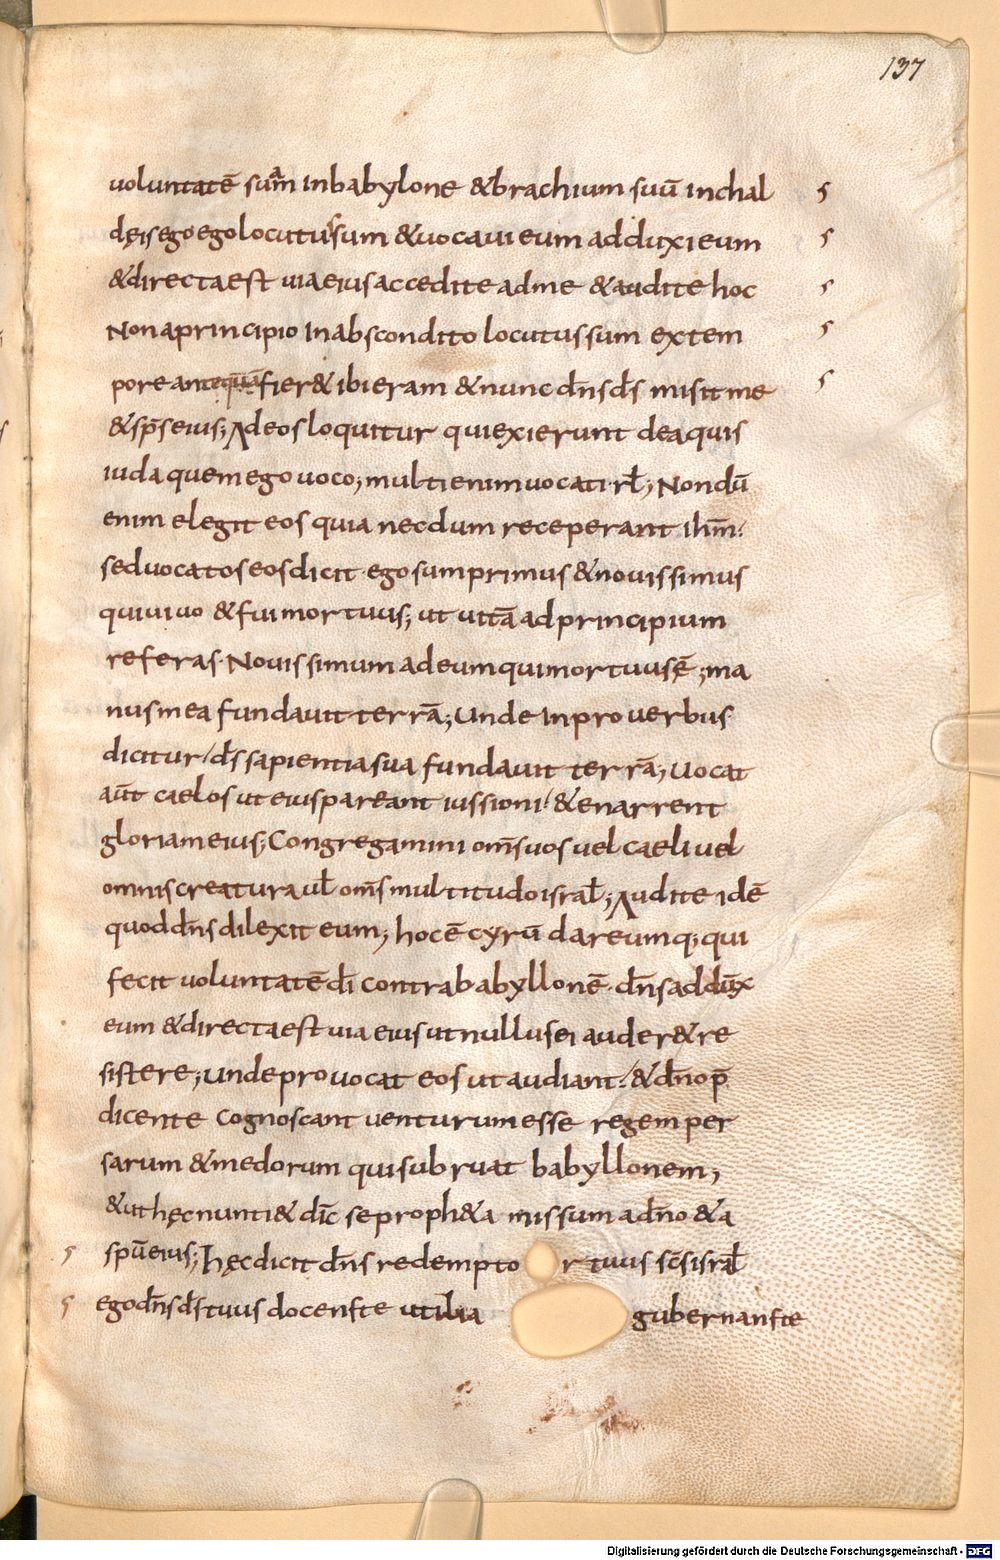 137
voluntatē suam inbabylone &brachium suū inchal
dęisegoegolocutussum &uocaui eum adduxieum
&directaest uiaeiusaccedite adme &audite hoc
Nonaprincipio Inabscondito locutussum extem
pore antequā fier& ibieram &nunc dn̄s ds̄ misit me
&sp̄seius; Adeosloquitur quiexierunt deaquis
iuda quemego uoco; multienimuocati·rł; Nondū
enim elegit eos quia necdum receperant ihm̄·
seduocatoseosdicit·egosumprimus &nouissimus
quiuiuo &fuimortuus; ut uitā adprincipium
referas·Nouissimum adeumquimortuusē; ma
nusmea fundauit terrā; Unde Inprouerbus·
dicitur/ ds̄sapientiasua fundauit terrā; Uocat
aūt caelos uteiuspareant iussioni/ &enarrent
gloriameius; Congregamini om̄suos uel caeli uel
omniscreatura uł om̄smultitudoisrał; Audite idē
quoddn̄sdilexit eum; hocē cyrū dareumq; qui
fecit uoluntatē dī contrababyllonē· dn̄saddūx
eum &directaest uia eius utnullusei auder& re
sistere; Undeprouocat eos ut audiant· &dn̄op̄
dicente cognoscant uenturumesse regemper
sarum &medorum quisubruat babyllonem;
&uthęcnunti& dic̄ seproph&a missum adn̄o &a
spūeius; hęcdicit dn̄s redempto r tuus sc̄sisrał
egodn̄sds̄tuus docenste utilia gubernanste
Digitalisierung gefördert durch die Deutsche Forschungsgemeinschaft - DFG